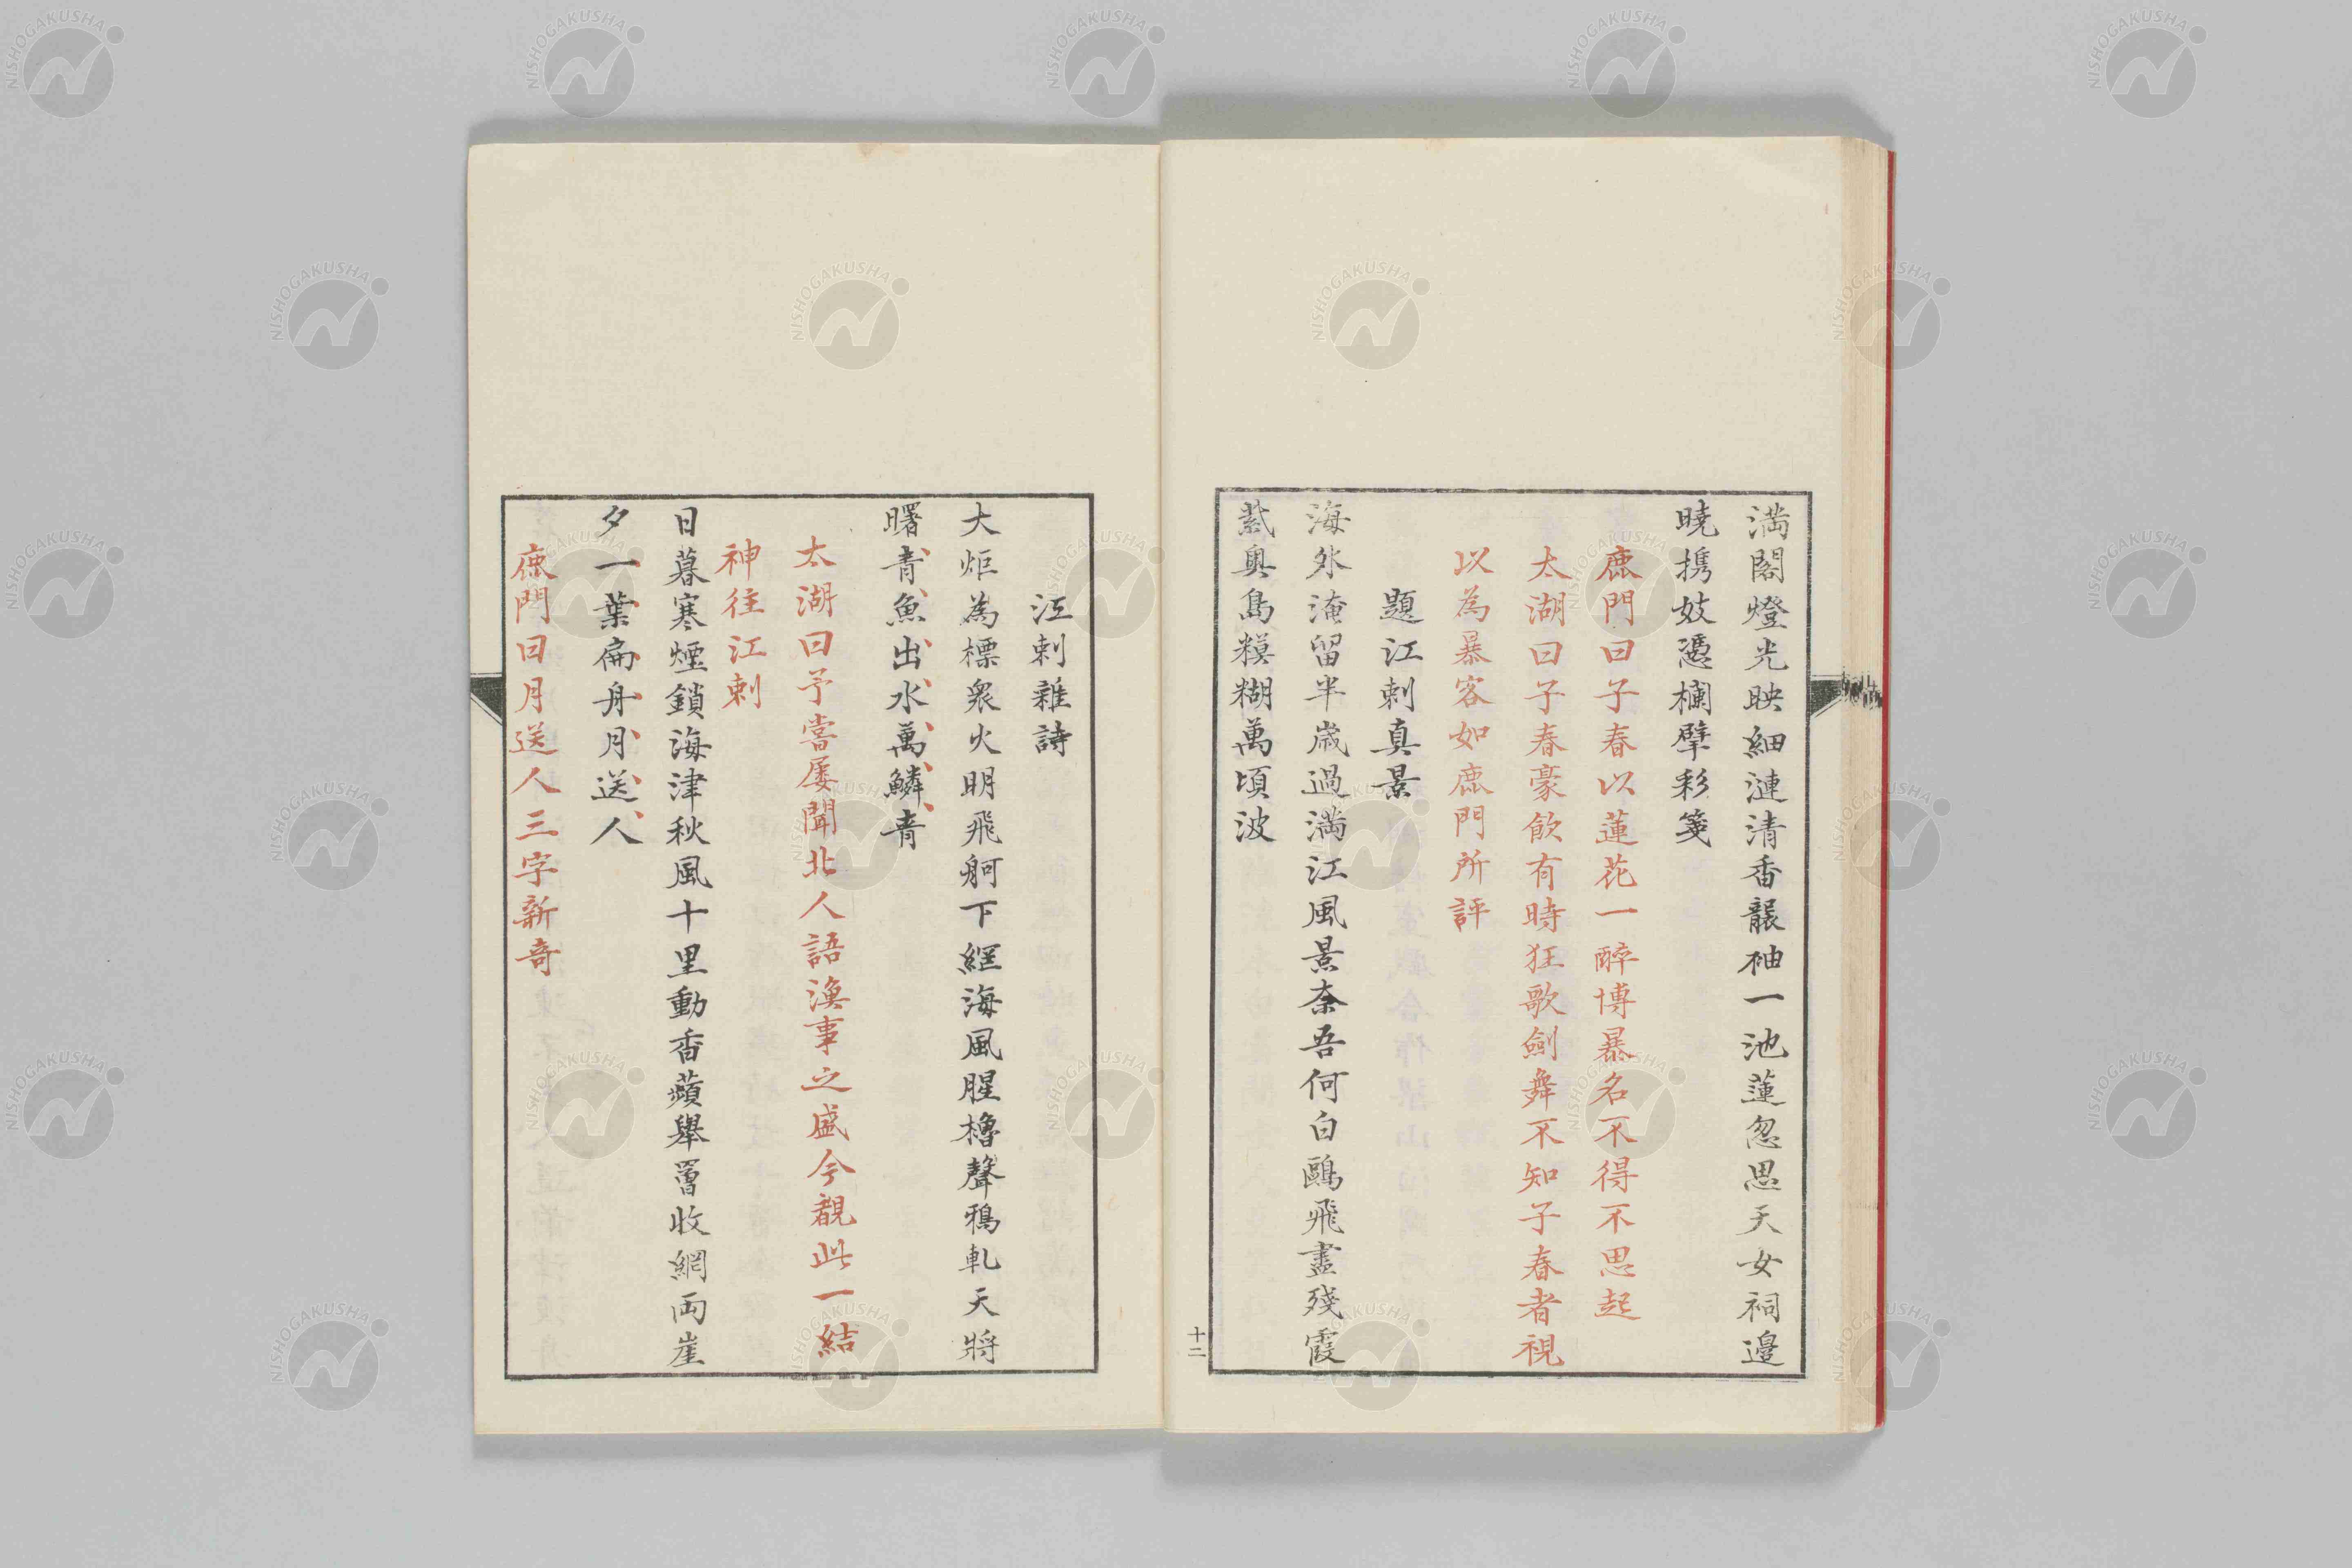 満閣燈光映細漣清香襲袖一池蓮忽思天女祠邉
曉携妓憑欄擘彩箋
鹿門曰子春以蓮花一醉博暴名不得不思起
太湖曰子春豪飲有時狂歌劍舞不知子春者視
以為暴客如鹿門所評
題江刺真景
海外淹留半歳過満江風景奈吾何白鷗飛盡殘霞
紫奥島糢糊萬頃波
十二
江刺雜詩
大炬為標衆火明飛舸下網海風腥櫓聲鴉軋天將
曙青魚出水萬鱗青
太湖曰予嘗屡聞北人語漁事之盛今観此一結
神往江刺
日暮寒煙鎖海津秋風十里動香蘋舉罾收網両崖
夕一葉扁舟月送人
鹿門曰月送人三字新奇
NISHOGAKUSHA